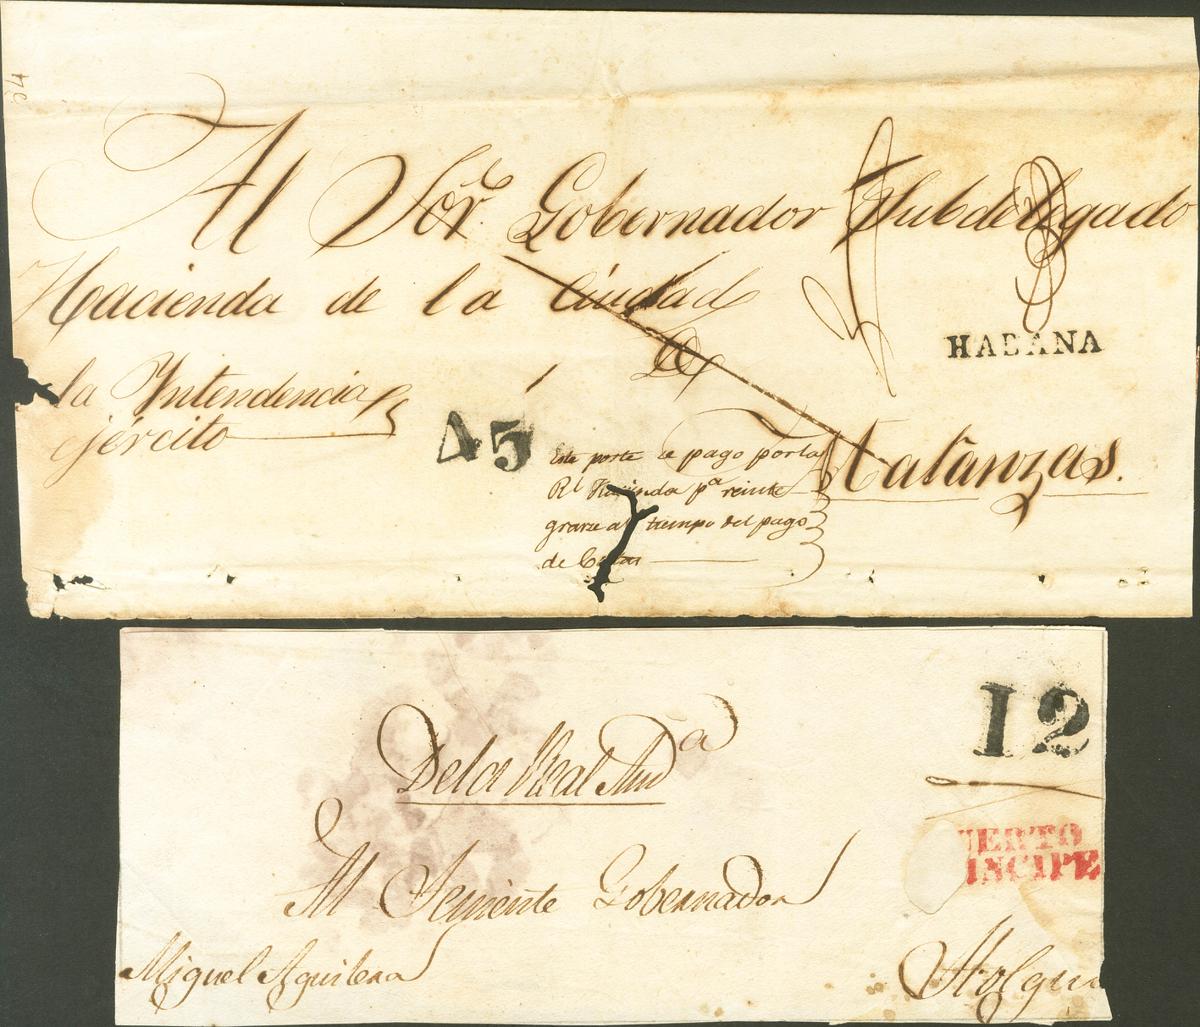 Al Sor. Gobernador Subdelegado
Hacienda de la Ciudad
HABANA
De
la Intendencia
ejército
45
Matanzas.
Este porte se pago por la
Rl Hacienda pa reinte
grarse al tiempo del pago
de Costas
12
De la Real Auda
UERTO
INCIPE
Al Teniente Gobernador
Miguel Aguilera
Holgui